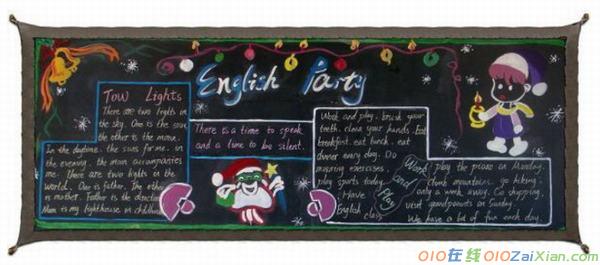 English Party
Tow Lights
There are two lights in
the sky. One is the sun,
the other is the moon.
In the daytime, the sun for me. in
the evening, the moon accompanies
me. There are two lights in the
world. One is father. The other
is mother. Father is the direction
Mom is my lighthouse in childhood
There is a time to speak
and a time to be silent.
Work and play. brush your
teeth. clean your hands. Eat
breakfast. eat lunch. eat
dinner every day. Do
morning exercises.
play sports today
Have
English class
Work
and
Play
play the piano on Monday.
climb mountains. go hiking.
only a week away. Go shopping.
visit grandparents on Sunday.
We have a lot of fun each day.
010在线 010ZaiXian.com